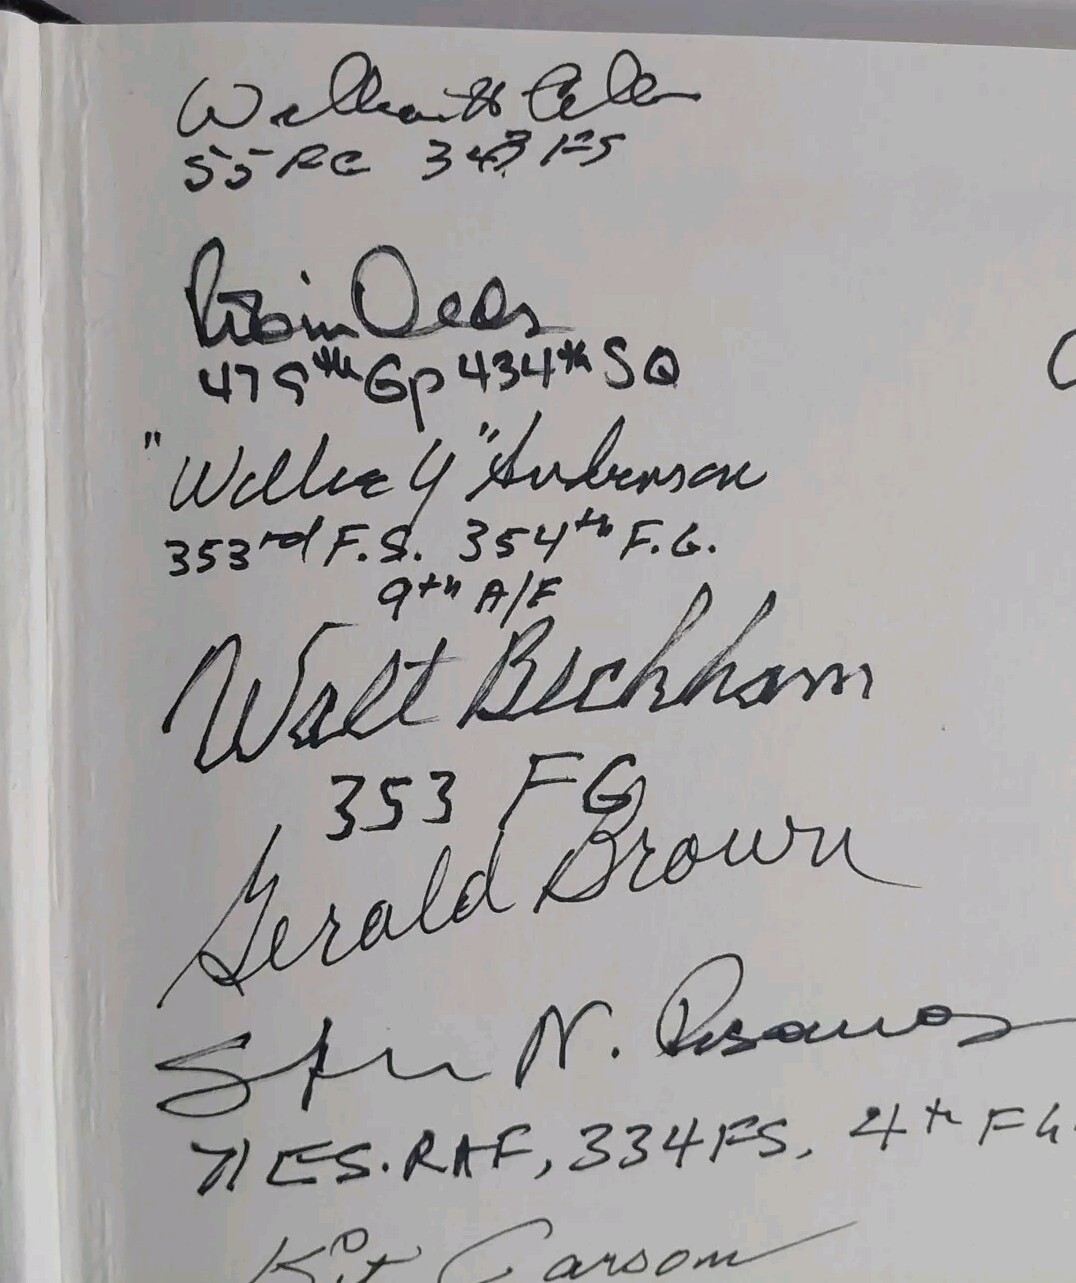 William H Allen
55 FG 343 FS
Robin Olds
479th Gp 434th SQ
"Willie Y" Anderson
353rd F.S. 354th F.G.
9th A/F
Walt Beckham
353 FG
Gerald Brown
Spiro N. Pisanos
71 ES. RAF, 334 FS, 4th FG
Kit Carson